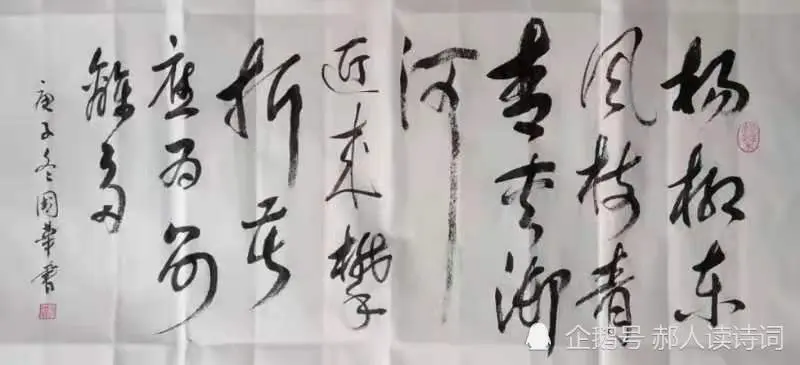 杨柳东
风树青
青夹御
河
近来攀
折苦
應为别
離多
庚子冬國華書
企鹅号 郝人读诗词